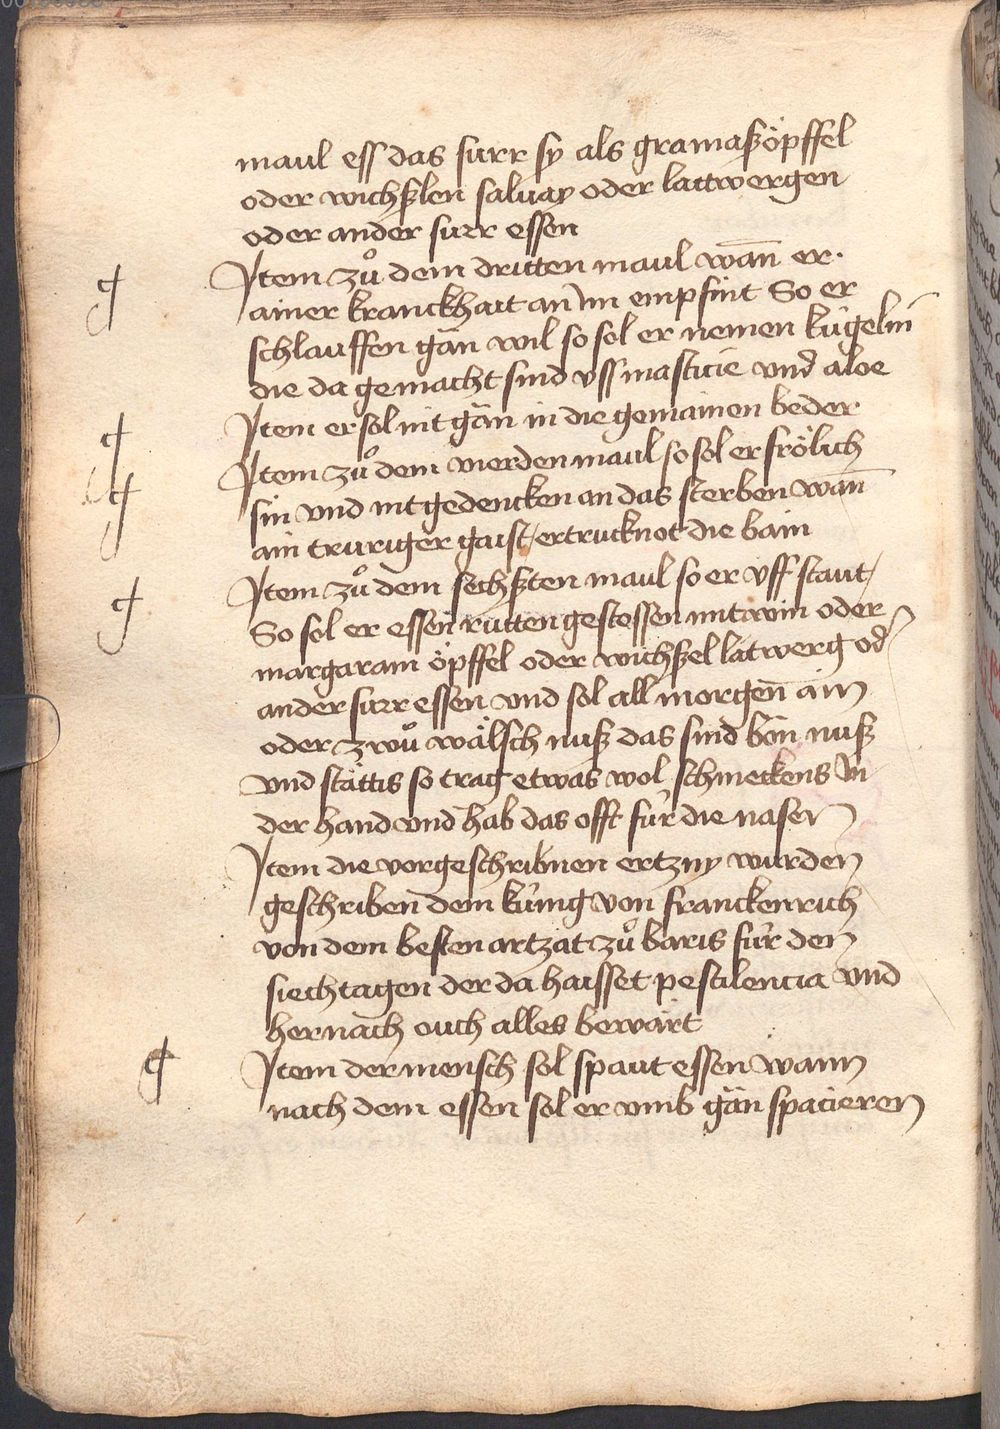 maul ess das surr sy als gramaßöpffel
oder wichßlen saluay oder lattwergen
oder ander surr essen
Jtem zů dem dritten maul wañ er
ainer kranckhait an im empfint So er
schlauffen gän wil so sol er nemen kügelin
die da gemacht sind uss masticie vnd aloe
Jtem er sol nit gän in die gemainen beder
Jtem zů dem vierden maul so sol er frölich
sin vnd nit gedencken an das sterben wañ
ain truriger gaist / ertrucknot die bain
Jtem zů dem sechßten maul so er vff staut /
So sol er essen rutten gestossen mit win oder
margaram öpffel oder wichßel latwerg od
ander surr essen vnd sol all morgen ain
oder zwů wälsch nuß das sind bön nuß
vnd stättis so trag etwas wol schmeckens in
der hand vnd hab das offt für die nasen
Jtem die vorgeschribnen ertzny wurden
geschriben dem küng von franckenrich
von dem besten artzat zů baris für den
siechtagen der da haisset pestilencia vnd
hernach ouch alles bewärt
Jtem der mensch sol spaut essen wann
nach dem essen sol er vmb gän spacieren